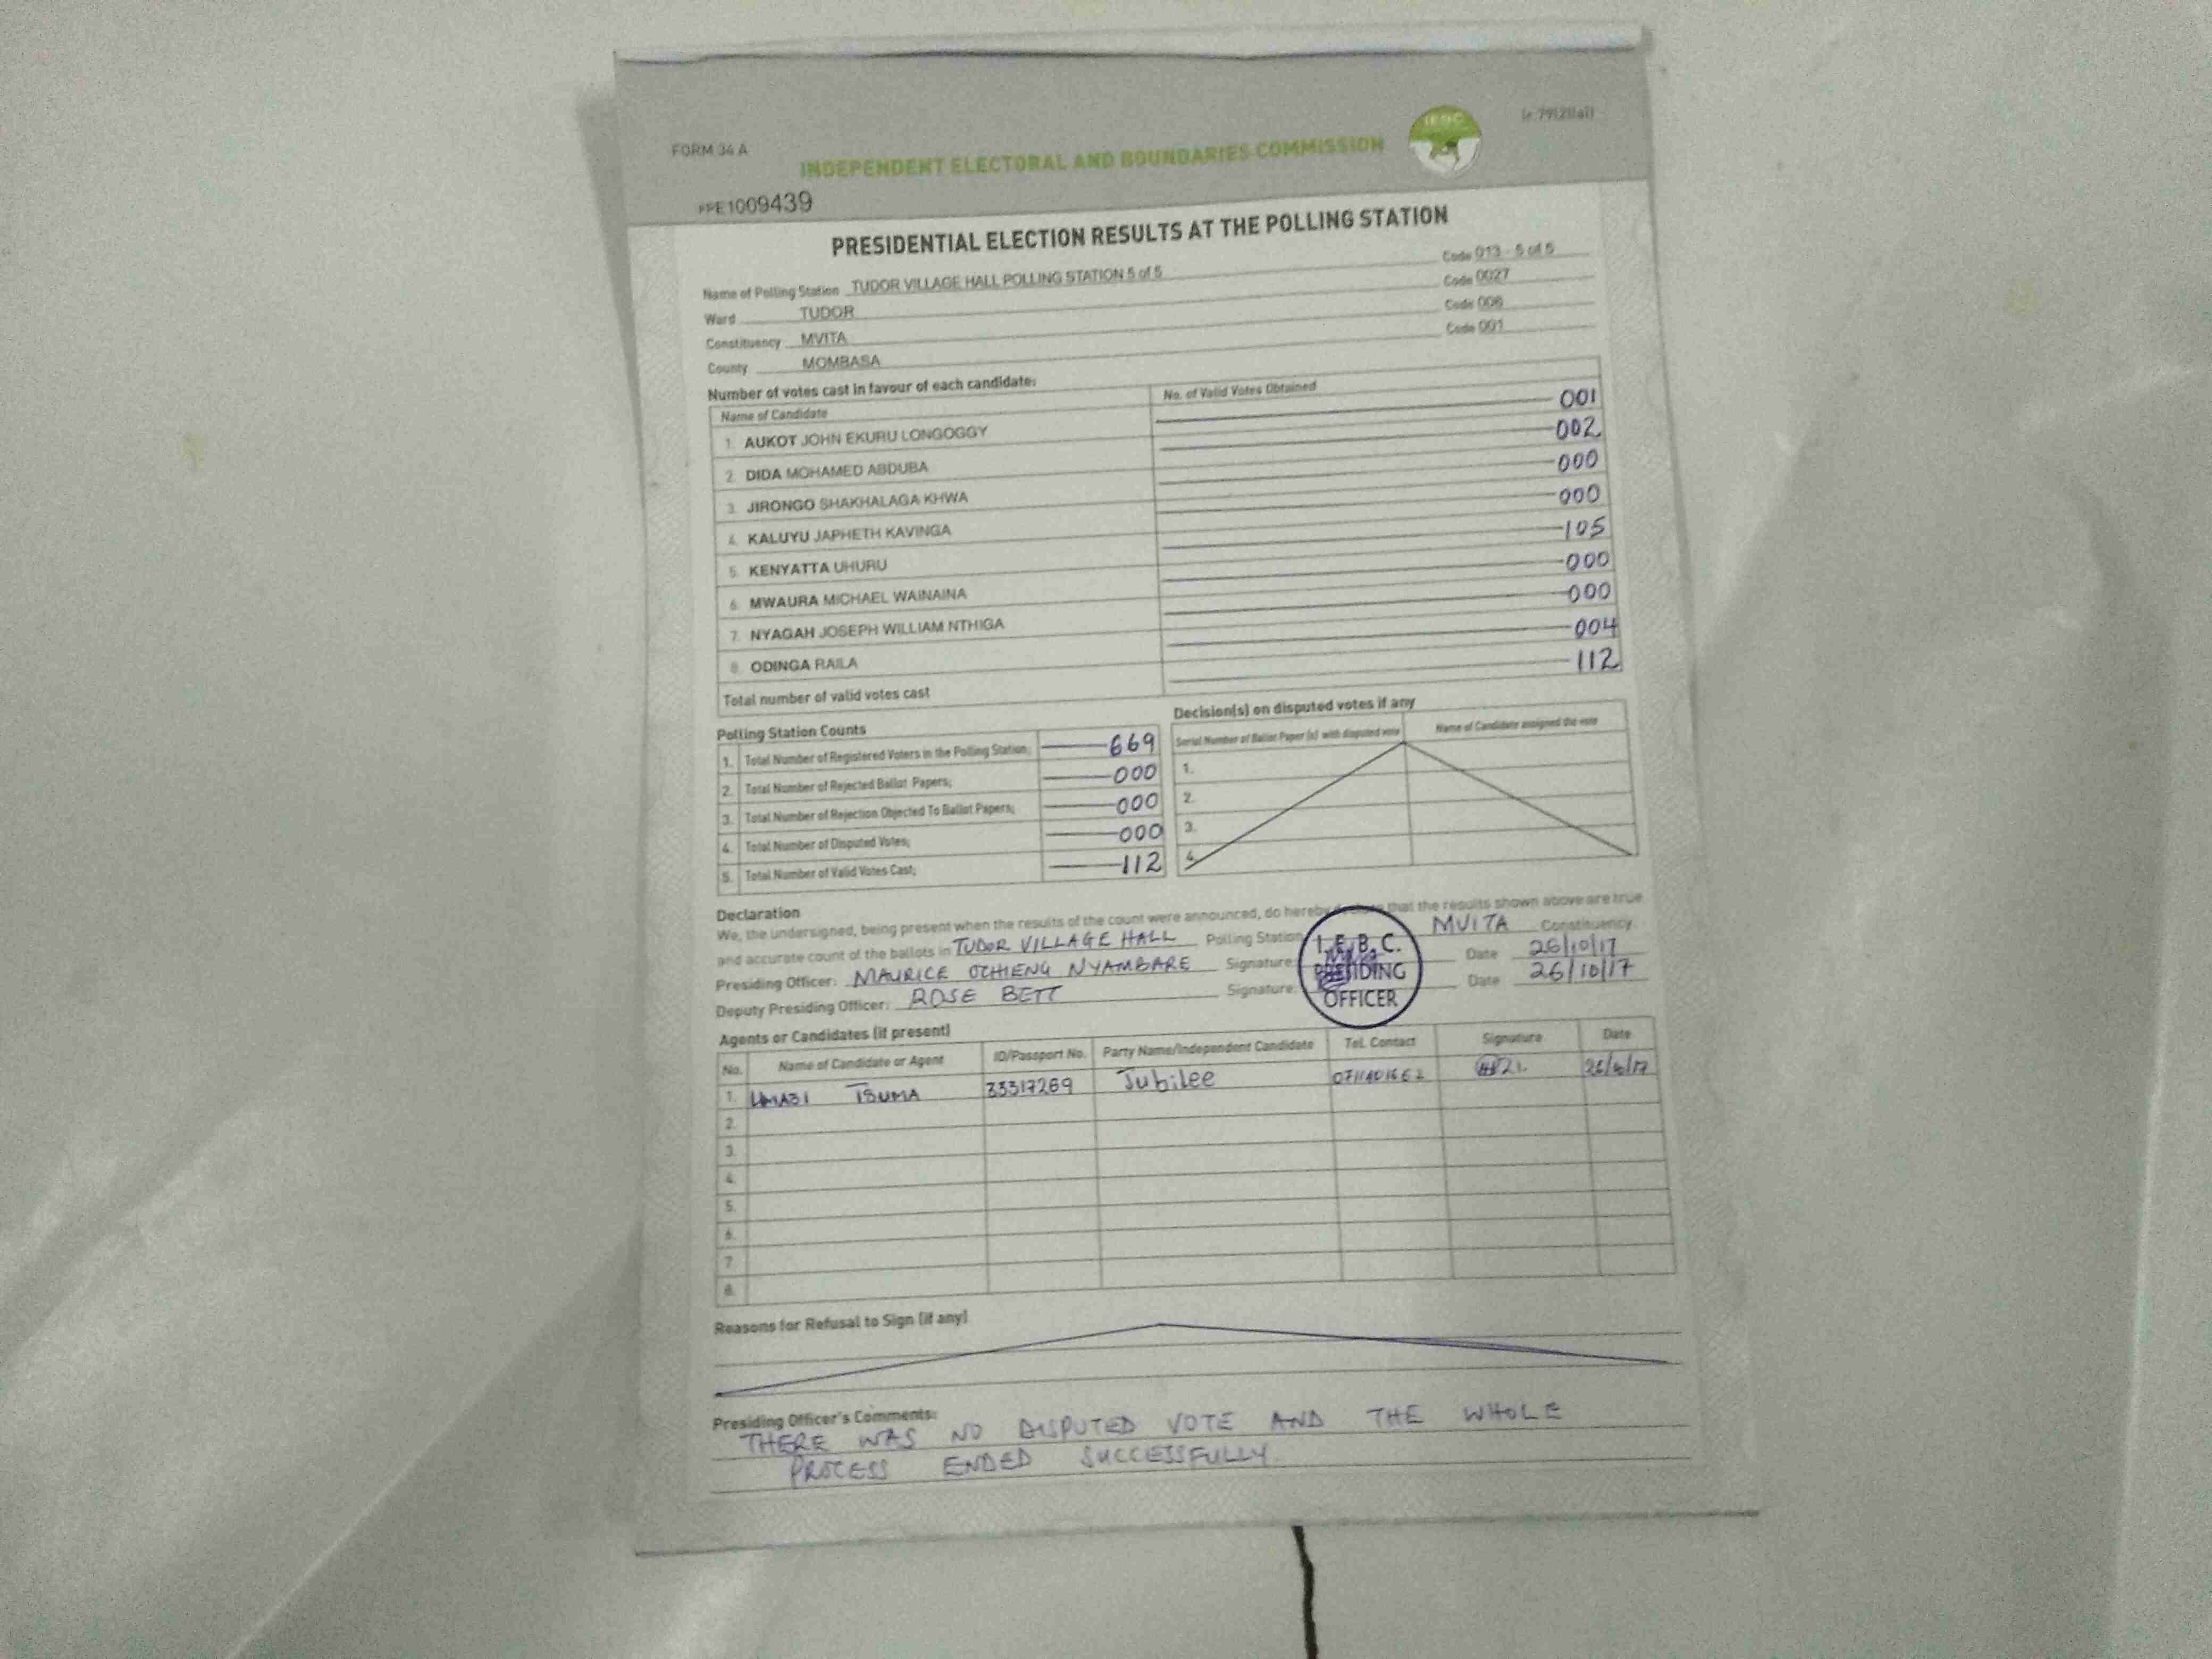 FORM 34 A
INDEPENDENT ELECTORAL AND BOUNDARIES COMMISSION
IEBC
PPE1009439
PRESIDENTIAL ELECTION RESULTS AT THE POLLING STATION
Name of Polling Station TUDOR VILLAGE HALL POLLING STATION 5 of 5 Code 013 - 5 of 5
Ward TUDOR Code 0027
Constituency MVITA Code 006
County MOMBASA Code 001
Number of votes cast in favour of each candidate:
Name of Candidate No. of Valid Votes Obtained
1. AUKOT JOHN EKURU LONGOGGY 001
2. DIDA MOHAMED ABDUBA 002
3. JIRONGO SHAKHALAGA KHWA 000
4. KALUYU JAPHETH KAVINGA 000
5. KENYATTA UHURU 105
6. MWAURA MICHAEL WAINAINA 000
7. NYAGAH JOSEPH WILLIAM NTHIGA 000
8. ODINGA RAILA 004
Total number of valid votes cast 112
Polling Station Counts
1. Total Number of Registered Voters in the Polling Station; 669
2. Total Number of Rejected Ballot Papers; 000
3. Total Number of Rejection Objected To Ballot Papers; 000
4. Total Number of Disputed Votes; 000
5. Total Number of Valid Votes Cast; 112
Decision(s) on disputed votes if any
Serial Number of Ballot Paper (s) with disputed vote Name of Candidate assigned the vote
1.
2.
3.
4.
Declaration
We, the undersigned, being present when the results of the count were announced, do hereby that the results shown above are true
and accurate count of the ballots in TUDOR VILLAGE HALL Polling Station MVITA Constituency.
Presiding Officer: MAURICE OCHIENG NYAMBARE Signature: Date 26/10/17
Deputy Presiding Officer: ROSE BETT Signature: Date 26/10/17
I.E.B.C.
PRESIDING
OFFICER
Agents or Candidates (if present)
No. Name of Candidate or Agent ID/Passport No. Party Name/Independent Candidate Tel. Contact Signature Date
1. TSUMA 33317269 Jubilee 26/10/17
2.
3.
4.
5.
6.
7.
8.
Reasons for Refusal to Sign (if any)
Presiding Officer's Comments:
THERE WAS NO DISPUTED VOTE AND THE WHOLE
PROCESS ENDED SUCCESSFULLY